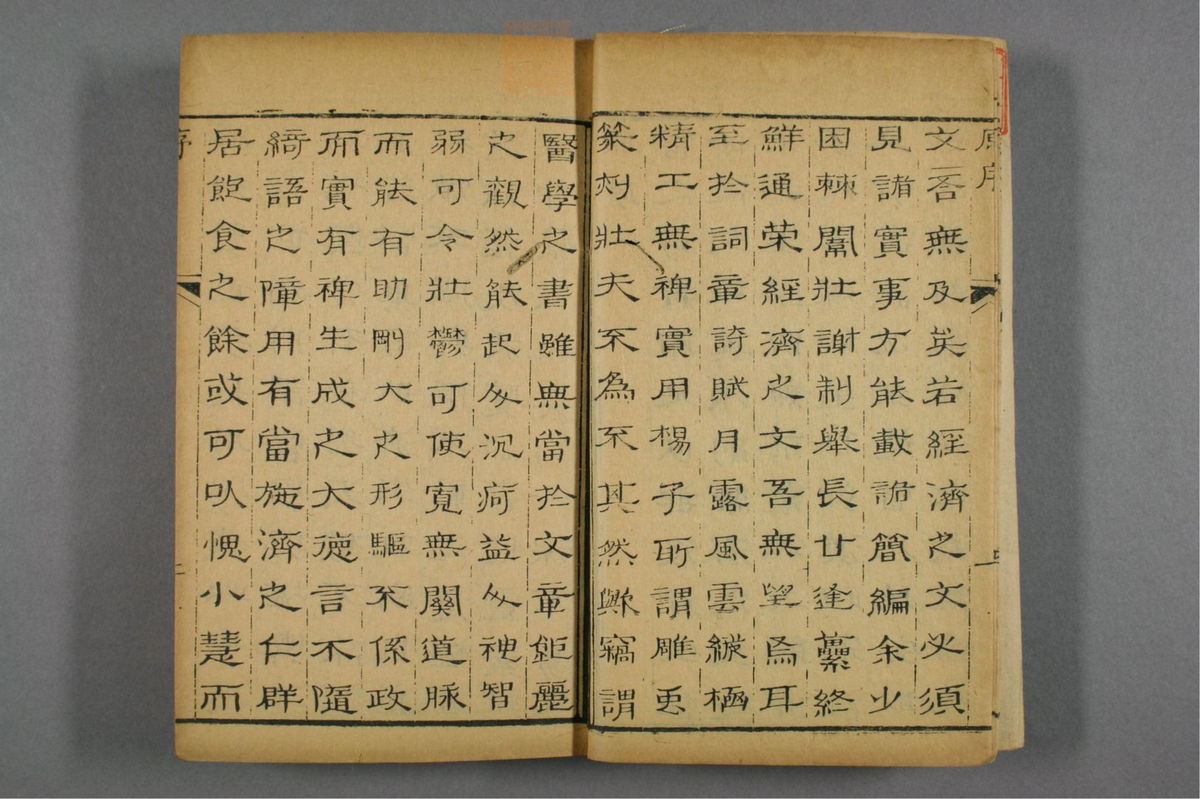 原序
文吾無及矣若經濟之文必須
見諸實事方能載諸簡編余少
困棘闈壯謝制舉長廿逢纍終
鮮通荣經濟之文吾無望焉耳
至於詞章詩賦月露風雲縱極
精工無裨實用楊子所謂雕蟲
篆刻壯夫不為不其然歟竊謂
醫學之書雖無當於文章鉅麗
之觀然能起人沉疴益人神智
弱可令壯鬱可使寬無關道脉
而能有助剛大之形驅不係政
而實有裨生成之大德言不隨
綺語之障用有當施濟之仁群
居飽食之餘或可以愧小慧而
序